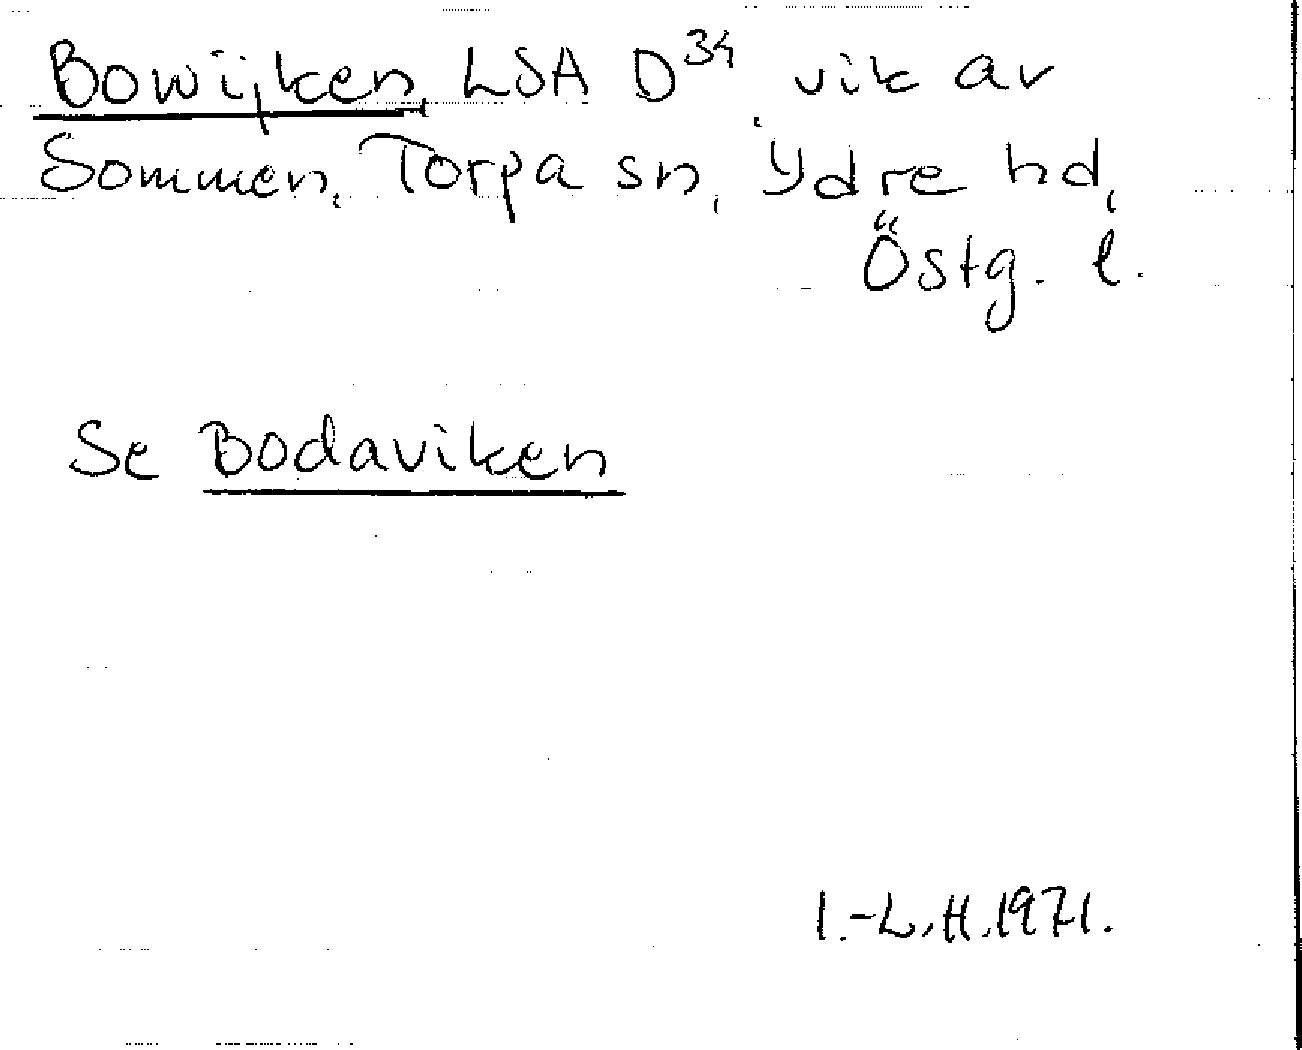 Bowijken, LSA D³⁴, vik av
Sommen, Torpa sn, Ydre hd,
Östg. l.
Se Bodaviken
I.-L.H.1971.